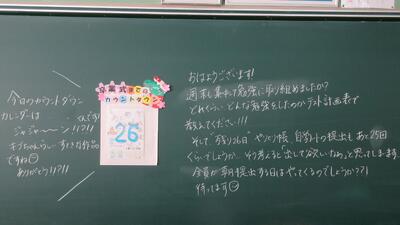 今日のカウントダウン
カレンダーは
ジャジャーーン!!?!!
すてきな作品
ですね
ありがとう!!?!!
卒業式までの
カウントダウン
26
おはようございます!
週末も集中して勉強に取り組めましたか?
どれくらいどんな勉強をしたかテスト計画表で
教えてください!!!
そして"残り26日" やりとり帳、自学ノートの提出もあと25回
くらいでしょうか。そう考えると"出して欲しいなあ"と思ってしまいます。
全員が朝提出する日はやってくるのでしょうか??
待ってます